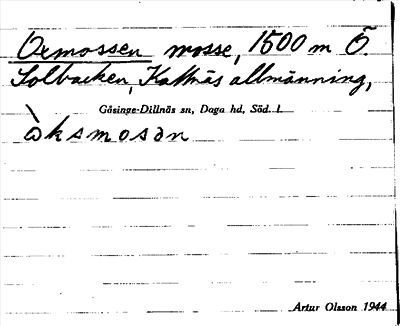 Oxmossen mosse, 1500 m Ö.
Solbacken, Kattnäs allmänning,
Gåsinge-Dillnäs sn, Daga hd, Söd. l.
òksmosan
Artur Olsson 1944